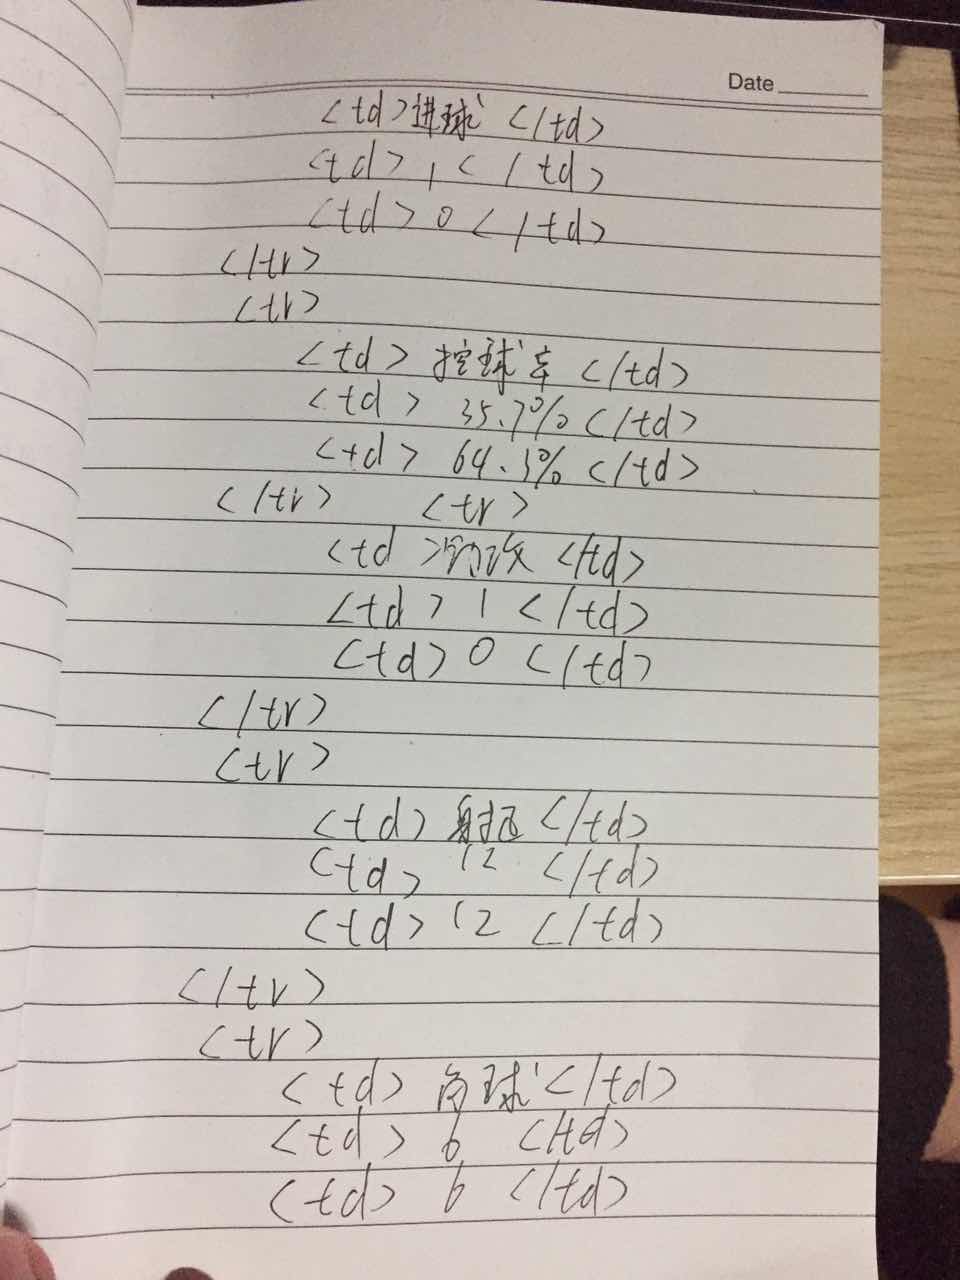 Date
<td>进球</td>
<td>1</td>
<td>0</td>
</tr>
<tr>
<td>控球率</td>
<td>35.7%</td>
<td>64.3%</td>
</tr> <tr>
<td>助攻</td>
<td>1</td>
<td>0</td>
</tr>
<tr>
<td>射正</td>
<td>12</td>
<td>12</td>
</tr>
<tr>
<td>角球</td>
<td>6</td>
<td>6</td>